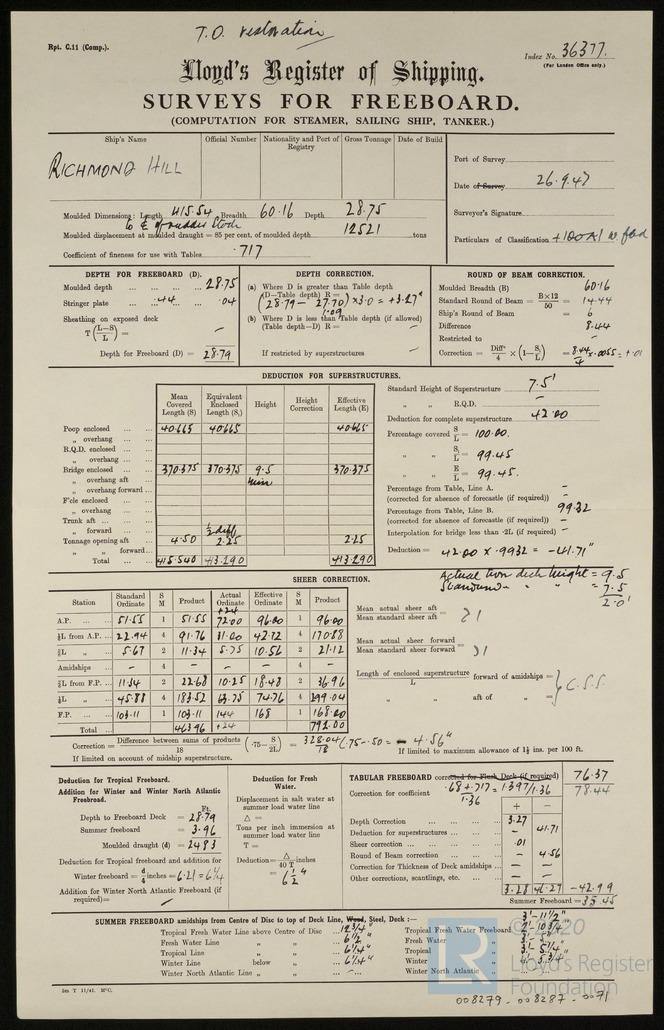 T.O. restoration
Rpt. C.11 (Comp.).
Index No. 36377.
(For London Office only.)
Lloyd's Register of Shipping.
SURVEYS FOR FREEBOARD.
(COMPUTATION FOR STEAMER, SAILING SHIP, TANKER.)
Ship's Name Official Number Nationality and Port of Registry Gross Tonnage Date of Build
RICHMOND HILL
Port of Survey
Date of Survey 26.9.47
Surveyor's Signature
Particulars of Classification +100A1 w. fbd
Moulded Dimensions: Length 415.54 Breadth 60.16 Depth 28.75
to ℄ of rudder stock
Moulded displacement at moulded draught = 85 per cent. of moulded depth 12521 tons
Coefficient of fineness for use with Tables .717
DEPTH FOR FREEBOARD (D).
Moulded depth ... ... ... 28.75
Stringer plate ... .44 ... .04
Sheathing on exposed deck
T (L−S/L) = –
Depth for Freeboard (D) = 28.79
DEPTH CORRECTION.
(a) Where D is greater than Table depth
(D−Table depth) R =
(28.79 − 27.70) × 3.0 = +3.27"
1.09
(b) Where D is less than Table depth (if allowed)
(Table depth−D) R = –
If restricted by superstructures –
ROUND OF BEAM CORRECTION.
Moulded Breadth (B) 60.16
Standard Round of Beam = B×12/50 = 14.44
Ship's Round of Beam = 6
Difference 8.44
Restricted to –
Correction = Diff/4 × (1−S₁/L) = 8.44/4 × .0055 = +.01
DEDUCTION FOR SUPERSTRUCTURES.
Mean Covered Length (S) Equivalent Enclosed Length (S₁) Height Height Correction Effective Length (E)
Poop enclosed ... ... 40.665 40.665 40.665
„ overhang ... ...
R.Q.D. enclosed ...
„ overhang ...
Bridge enclosed ... 370.375 370.375 9.5 370.375
„ overhang aft min
„ overhang forward ...
F'cle enclosed ...
„ overhang ...
Trunk aft ... ...
„ forward ... ½ diff
Tonnage opening aft 4.50 2.25 2.25
„ „ forward ...
Total ... 415.540 413.290 413.290
Standard Height of Superstructure 7.5'
„ „ R.Q.D. –
Deduction for complete superstructure 42.00
Percentage covered S/L = 100.00.
„ „ S₁/L = 99.45
„ „ E/L = 99.45.
Percentage from Table, Line A. –
(corrected for absence of forecastle (if required)) –
Percentage from Table, Line B. 99.32
(corrected for absence of forecastle (if required)) –
Interpolation for bridge less than ·2L (if required) –
Deduction = 42.00 × .9932 = −41.71"
Actual twn deck height = 9.5
Standard „ „ = 7.5
2.0'
SHEER CORRECTION.
Station Standard Ordinate S M Product Actual Ordinate Effective Ordinate S M Product
+24
A.P. ... ... 51.55 1 51.55 72.00 96.00 1 96.00
⅙L from A.P. ... 22.94 4 91.76 31.00 42.72 4 170.88
⅓L „ ... 5.67 2 11.34 5.75 10.56 2 21.12
Amidships ... – 4 – – – 4 –
⅓L from F.P. ... 11.34 2 22.68 10.25 18.48 2 36.96
⅙L „ ... 45.88 4 183.52 63.75 74.76 4 299.04
F.P. ... ... 103.11 1 103.11 144 168 1 168.00
Total ... 463.96 +24 792.00
Mean actual sheer aft
Mean standard sheer aft = >1
Mean actual sheer forward
Mean standard sheer forward = >1
Length of enclosed superstructure/L forward of amidships =
„ „ aft of „ = } C.S.S.
Correction = Difference between sums of products/18 (·75−S/2L) = 328.04/18 (.75−.50 = −4.56"
If limited on account of midship superstructure.
If limited to maximum allowance of 1½ ins. per 100 ft.
Deduction for Tropical Freeboard.
Addition for Winter and Winter North Atlantic Freeboard.
Ft.
Depth to Freeboard Deck = 28.79
Summer freeboard = 3.96
Moulded draught (d) = 24.83
Deduction for Tropical freeboard and addition for
Winter freeboard = d/4 inches = 6.21 = 6¼
Addition for Winter North Atlantic Freeboard (if required) = –
Deduction for Fresh Water.
Displacement in salt water at summer load water line
△ =
Tons per inch immersion at summer load water line
T =
Deduction = △/40 T inches
= 6½"
TABULAR FREEBOARD corrected for Flush Deck (if required) 76.37
Correction for coefficient .68+.717/1.36 = 1.397/1.36 78.44
+ −
Depth Correction ... 3.27 –
Deduction for superstructures ... – 41.71
Sheer correction ... .01
Round of Beam correction ... – 4.56
Correction for Thickness of Deck amidships ... – –
Other corrections, scantlings, etc. ... – –
3.28 46.27 −42.99
Summer Freeboard = 35.45
SUMMER FREEBOARD amidships from Centre of Disc to top of Deck Line, Wood, Steel, Deck :— 3'-11½"
Tropical Fresh Water Line above Centre of Disc ... 12¾"
Fresh Water Line „ „ ... 6½"
Tropical Line „ „ ... 6¼"
Winter Line below „ ... 6¼"
Winter North Atlantic Line „ „ ... –
Tropical Fresh Water Freeboard 2'-10¾"
Fresh Water „
Tropical „ 3'-5¼"
Winter „
Winter North Atlantic „ –
© 2020
LR
Lloyd's Register
Foundation
008279-008287-0071